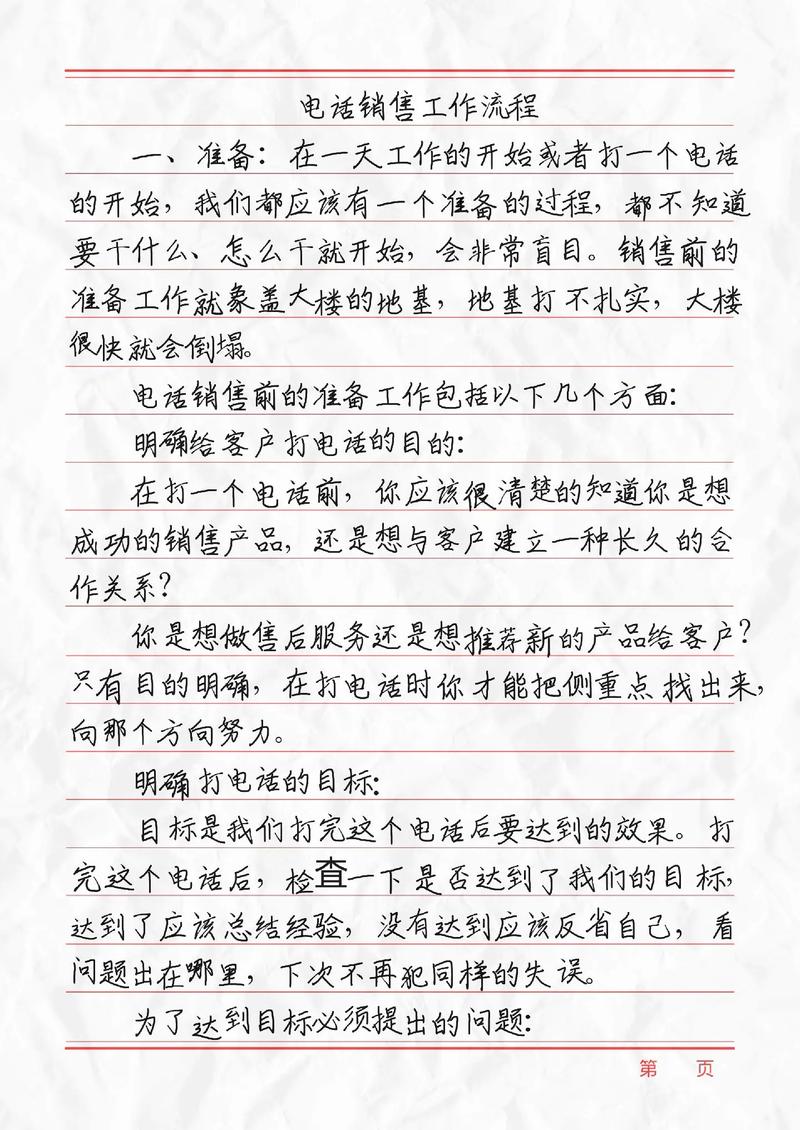 电话销售工作流程
一、准备：在一天工作的开始或者打一个电话
的开始，我们都应该有一个准备的过程，都不知道
要干什么、怎么干就开始，会非常盲目。销售前的
准备工作就象盖大楼的地基，地基打不扎实，大楼
很快就会倒塌。
电话销售前的准备工作包括以下几个方面：
明确给客户打电话的目的：
在打一个电话前，你应该很清楚的知道你是想
成功的销售产品，还是想与客户建立一种长久的合
作关系？
你是想做售后服务还是想推荐新的产品给客户？
只有目的明确，在打电话时你才能把侧重点找出来，
向那个方向努力。
明确打电话的目标：
目标是我们打完这个电话后要达到的效果。打
完这个电话后，检查一下是否达到了我们的目标，
达到了应该总结经验，没有达到应该反省自己，看
问题出在哪里，下次不再犯同样的失误。
为了达到目标必须提出的问题：
第 页